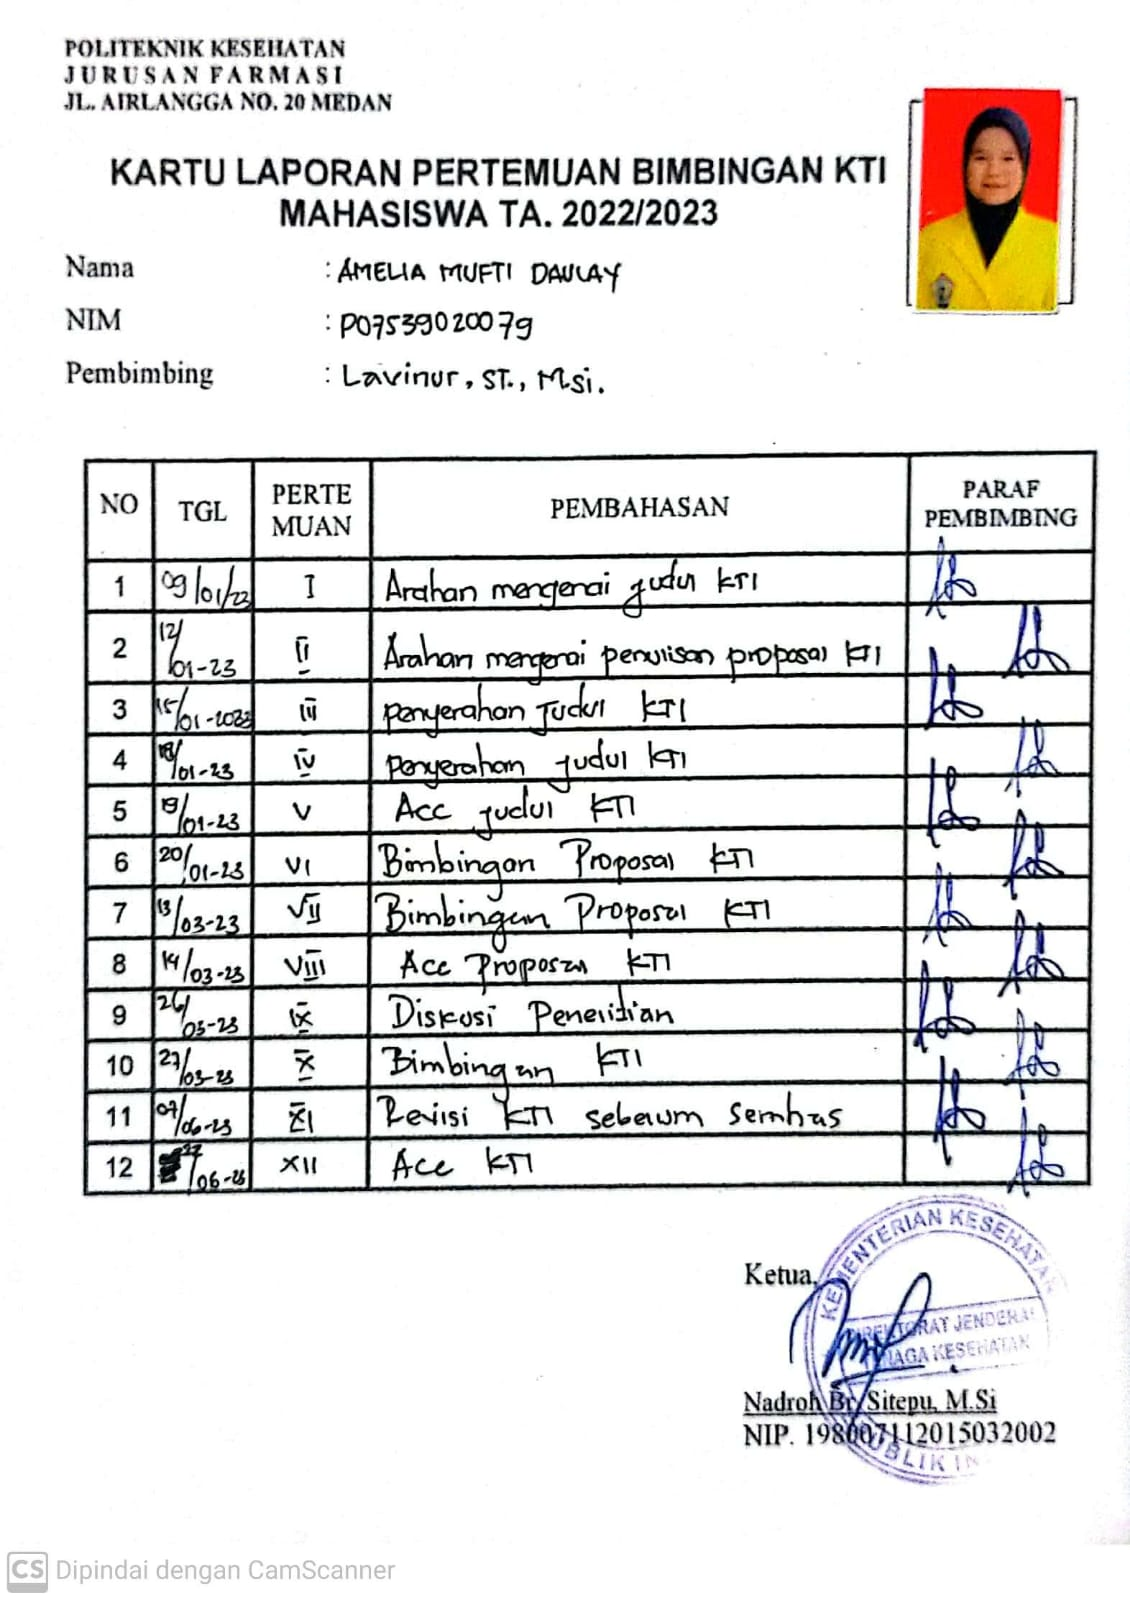 POLITEKNIK KESEHATAN
JURUSAN FARMASI
JL. AIRLANGGA NO. 20 MEDAN
KARTU LAPORAN PERTEMUAN BIMBINGAN KTI
MAHASISWA TA. 2022/2023
Nama : AMELIA MUFTI DAULAY
NIM : P07539020079
Pembimbing : Lavinur, ST., Msi.
NO TGL PERTE MUAN PEMBAHASAN PARAF PEMBIMBING
1 09/01/23 I Arahan mengenai judul KTI
2 12/01-23 II Arahan mengenai penulisan proposal KTI
3 15/01-2023 III penyerahan Judul KTI
4 18/01-23 IV penyerahan judul KTI
5 19/01-23 V Acc judul KTI
6 20/01-23 VI Bimbingan Proposal KTI
7 13/03-23 VII Bimbingan Proposal KTI
8 14/03-23 VIII Acc Proposal KTI
9 26/ IX Diskusi Penelitian
10 27/ X Bimbingan KTI
11 07/06-23 XI Revisi KTI sebelum semhas
12 /06-23 XII Acc KTI
KEMENTERIAN KESEHATAN
Ketua,
DIREKTORAT JENDERAL
TENAGA KESEHATAN
Nadroh Br. Sitepu, M.Si
NIP. 198007112015032002
REPUBLIK IN
CS Dipindai dengan CamScanner